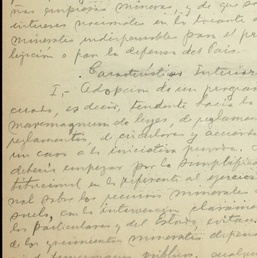 ñas empresas mineras, y de que so
intereses nacionales en lo tocante
minerales indispensables para el pr
lección o para la defensa del País.
Características Interior
I.- Adopción de un program
cuado, es decir, tendente hacia la
maremagnum de leyes, de reglame
reglamentos, de circulares y acuerdo
un caos a la iniciativa privada.
deberá empezar por la simplifica
titucional en lo referente al ejercici
nal sobre los recursos minerales
suelo, con la intervención clarame
los Particulares y del Estado, evitan
de los yacimientos minerales dependa
público, cualqu